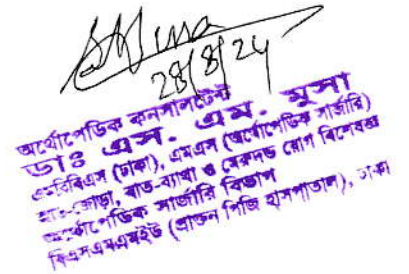 28/8/24
অর্থোপেডিক কনসালটেন্ট
ডাঃ এস. এম. মুসা
এমবিবিএস (ঢাকা), এমএস (অর্থোপেডিক সার্জারি)
হাড়-জোড়া, বাত-ব্যাথা ও মেরুদন্ড রোগ বিশেষজ্ঞ
অর্থোপেডিক সার্জারি বিভাগ
বিএসএমএমইউ (প্রাক্তন পিজি হাসপাতাল), ঢাকা